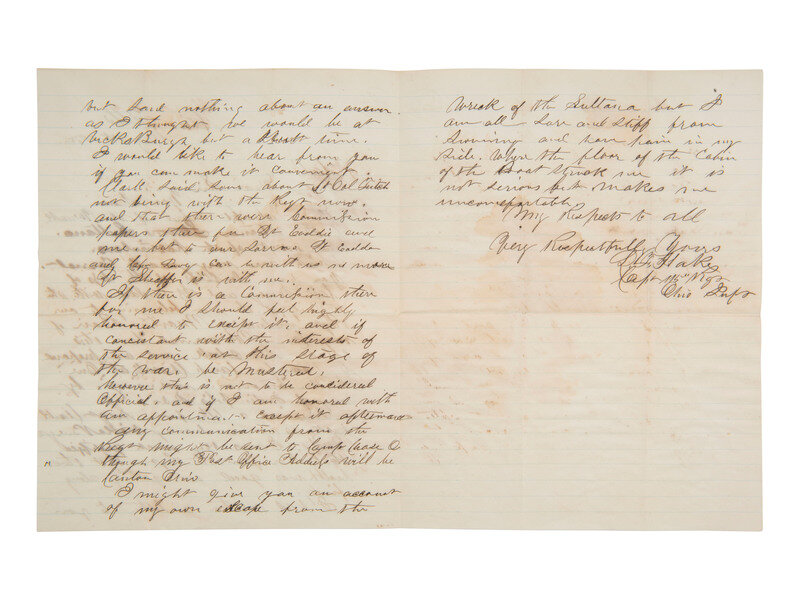 but said nothing about an answer
as I thought we would be at
VicksBurgh but a short time.
I would like to hear from you
if you can make it convenient.
Clark said some about Lt Col
not being with the Regt now.
and that there were Commission
papers there for Lt Eaddie and
me. but to our sorrow Lt Eaddie
and Lt can be with us no more
Lt is with me.
If there is a Commission there
for me I should feel highly
honored to except it, and if
concistant with the interests of
the service at this stage of
the war, be Mustered,
however this is not to be considered
Official. and if I am honored with
an appointment. Except it afterward
any communication from the
Regt might be sent to Camp Chase O
though my Post Office Address will be
Canton Ohio
I might give you an account
of my own escape from the
Wreck of the Sultana but I
am all Sore and Stiff from
Swiming and have pain in my
Side. Where the floor of the Cabin
of the Boat Struck me it is
not serious but makes me
uncomfortable
My Respects to all
Very Respectfully Yours
Capt Regt
Ohio Inft